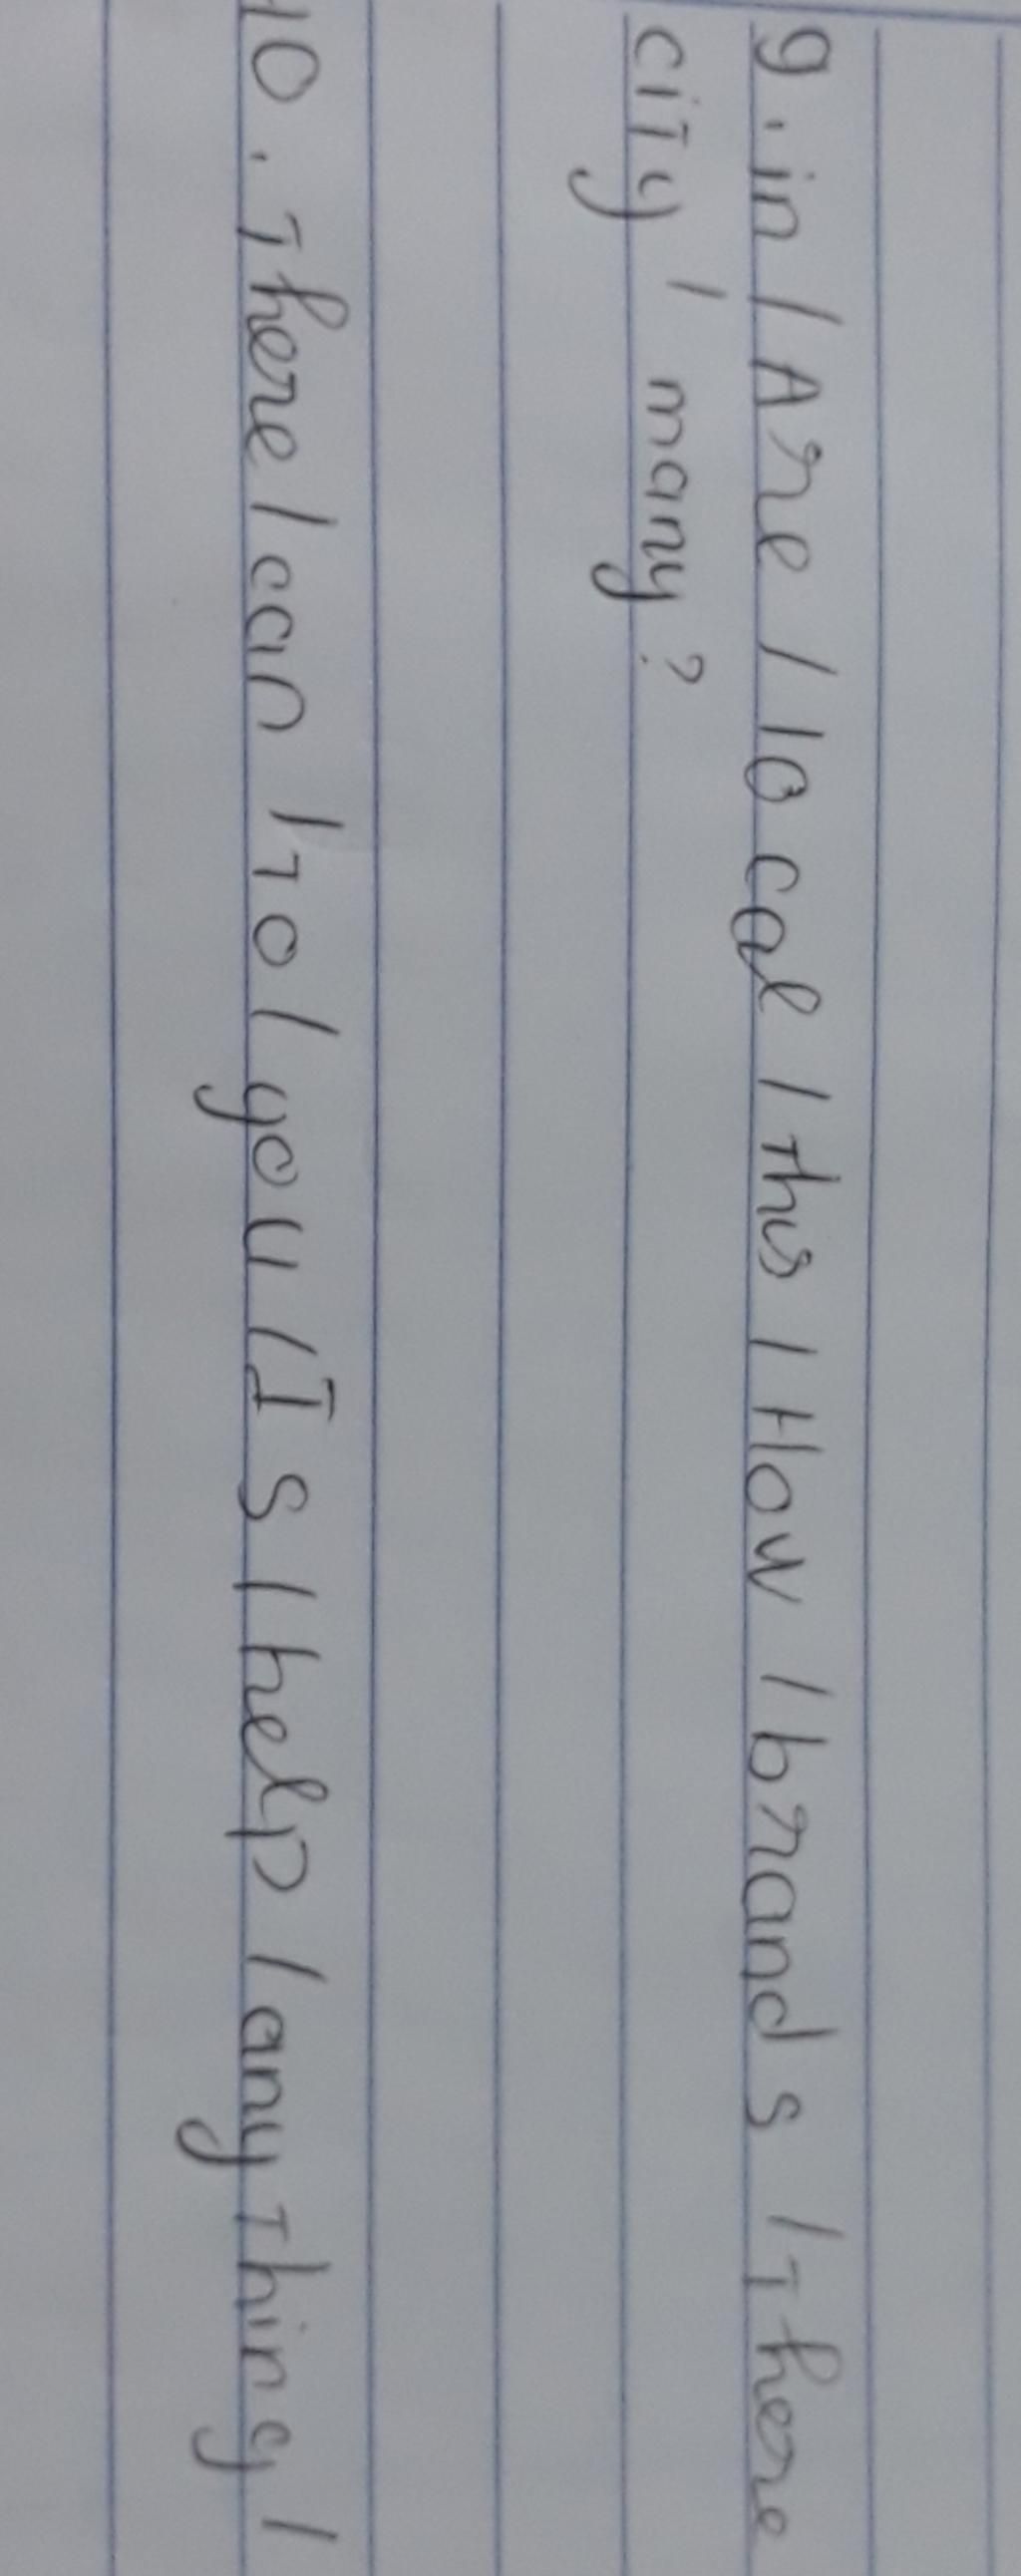 9. in / Are / local / this / How / brands / There
city / many?
10. There / can / to / you / Is / help / anything /